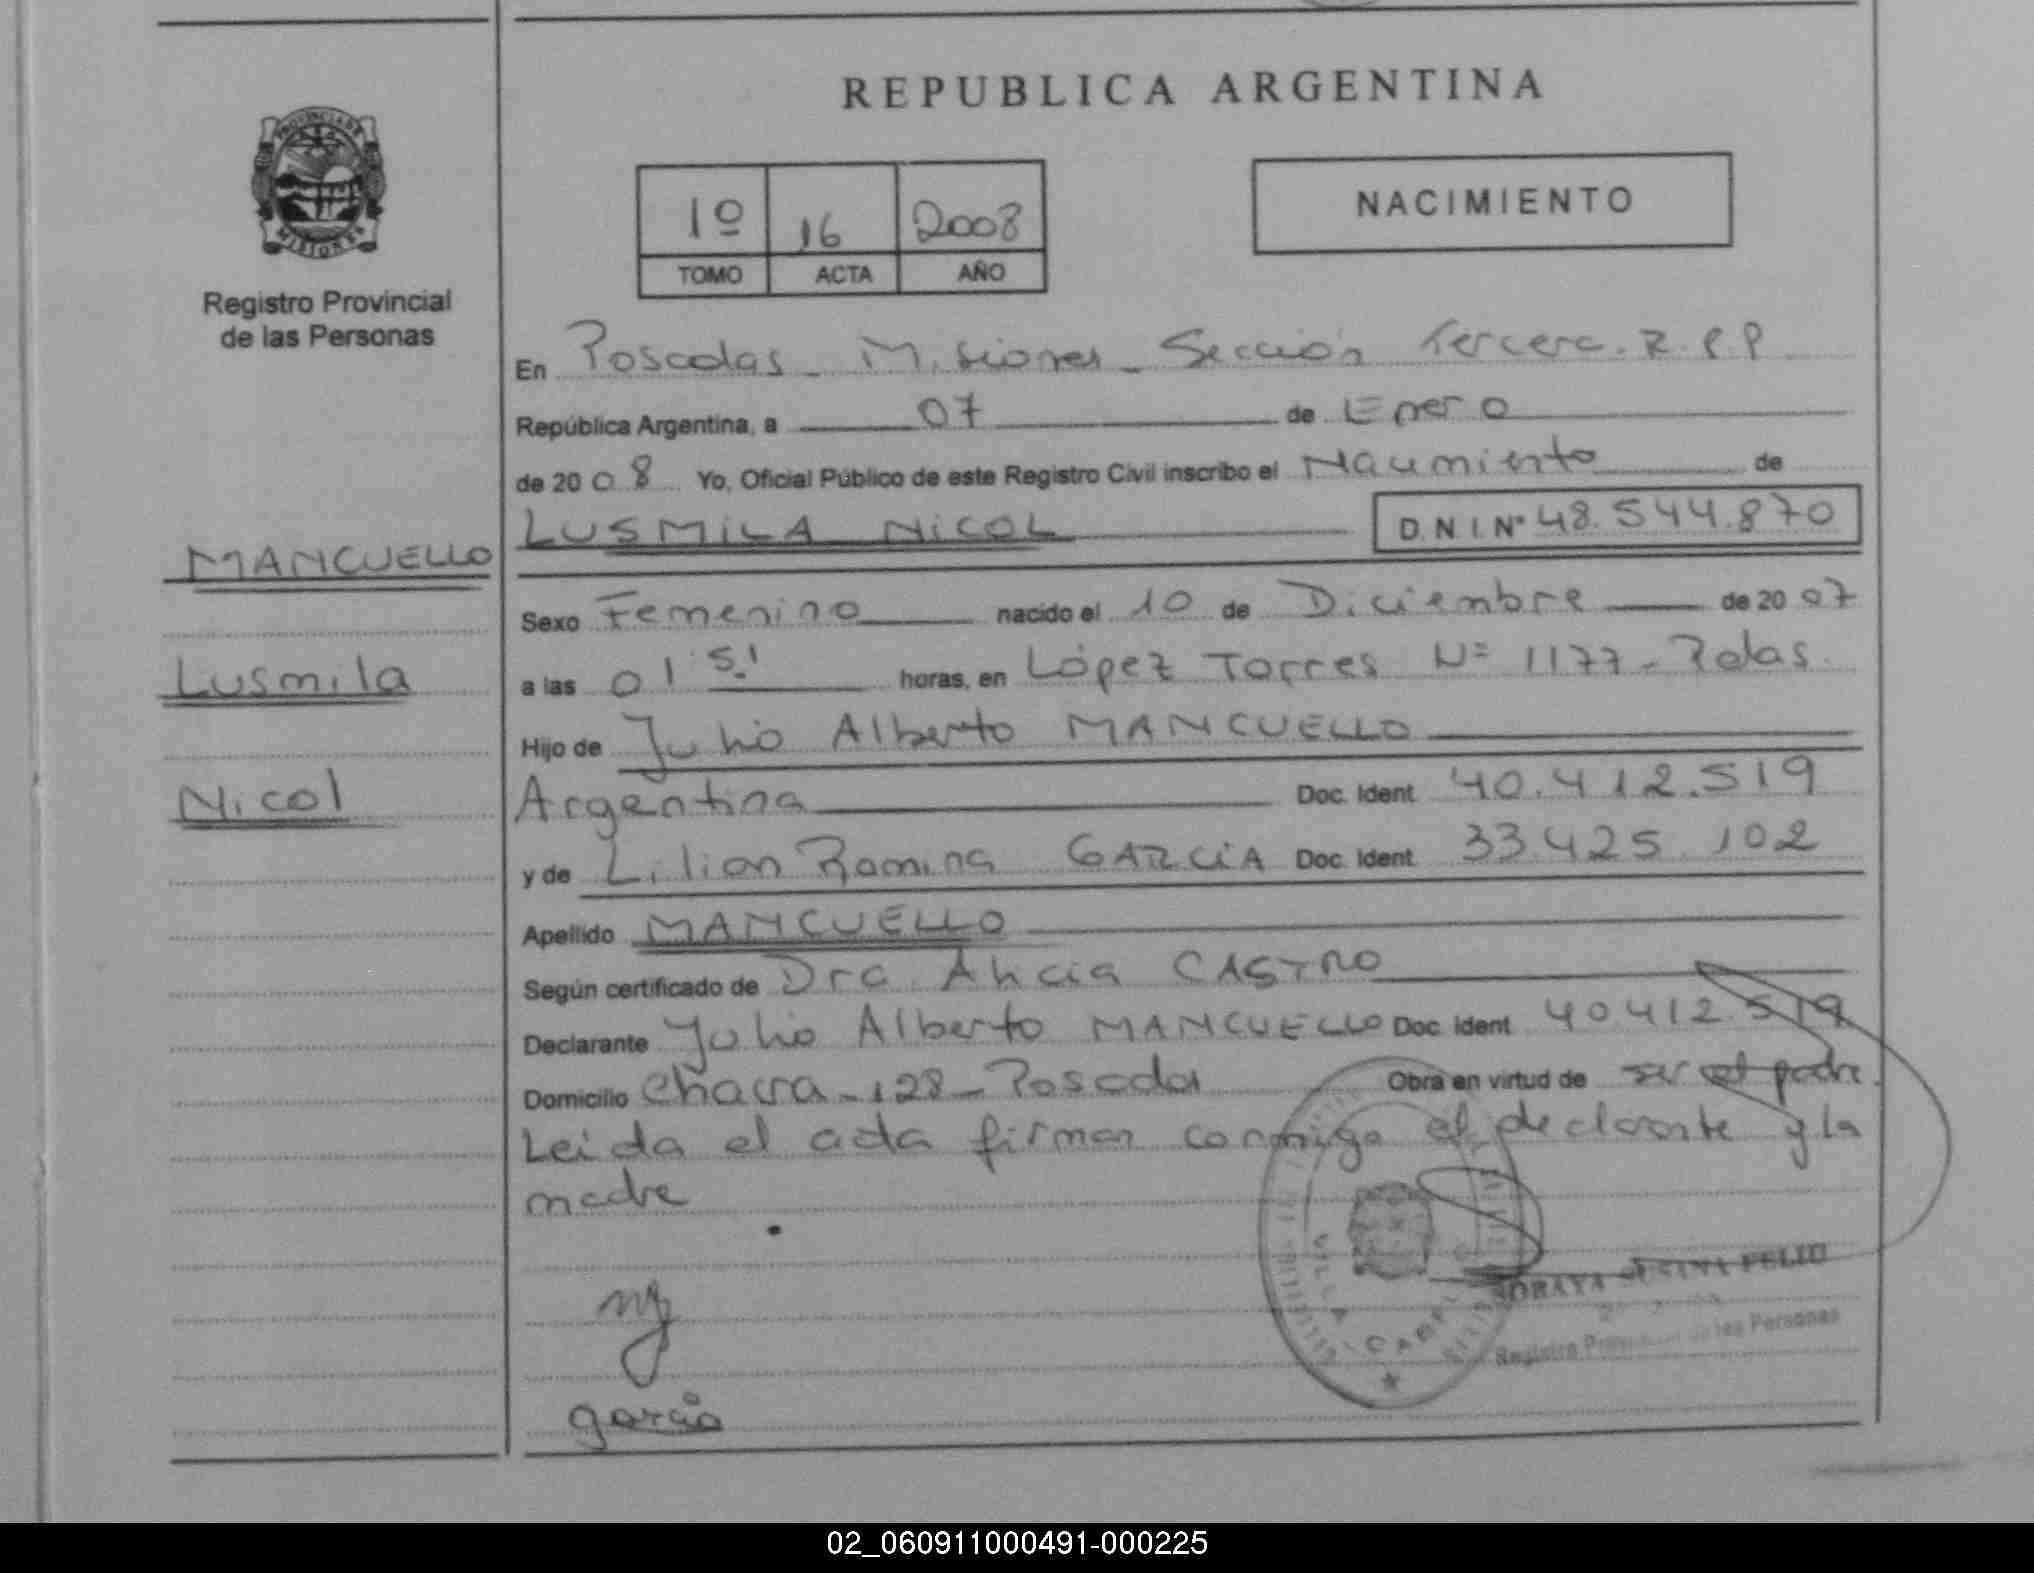 REPUBLICA ARGENTINA
PROVINCIA DE
MISIONES
Registro Provincial
de las Personas
1º 16 2008
TOMO ACTA AÑO
NACIMIENTO
En Posadas - Misiones - Sección Tercera. R.P.P.
República Argentina, a 07 de Enero
de 20 08 Yo, Oficial Público de este Registro Civil inscribo el Nacimiento de
LUSMILA NICOL D.N.I. Nº 48.544.870
MANCUELLO
Lusmila
Nicol
Sexo Femenino nacido el 10 de Diciembre de 20 07
a las 01:51 horas, en López Torres Nº 1177 - Pdas.
Hijo de Julio Alberto MANCUELLO
Argentina Doc. Ident 40.412.519
y de Lilian Romina GARCIA Doc. Ident 33.425.102
Apellido MANCUELLO
Según certificado de Dra. Alicia CASTRO
Declarante Julio Alberto MANCUELLO Doc. Ident 40.412.519
Domicilio Chacra - 128 - Posadas Obra en virtud de ser el padre.
Leida el acta firman conmigo el declarante y la
madre
garcia
Registro de las Personas
02_060911000491-000225